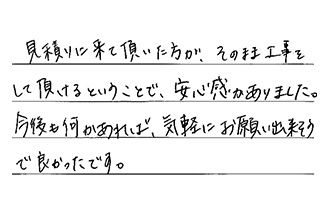 見積りに来て頂いた方が、そのまま工事を
して頂けるということで、安心感がありました。
今後も何かあれば、気軽にお願い出来そう
で良かったです。